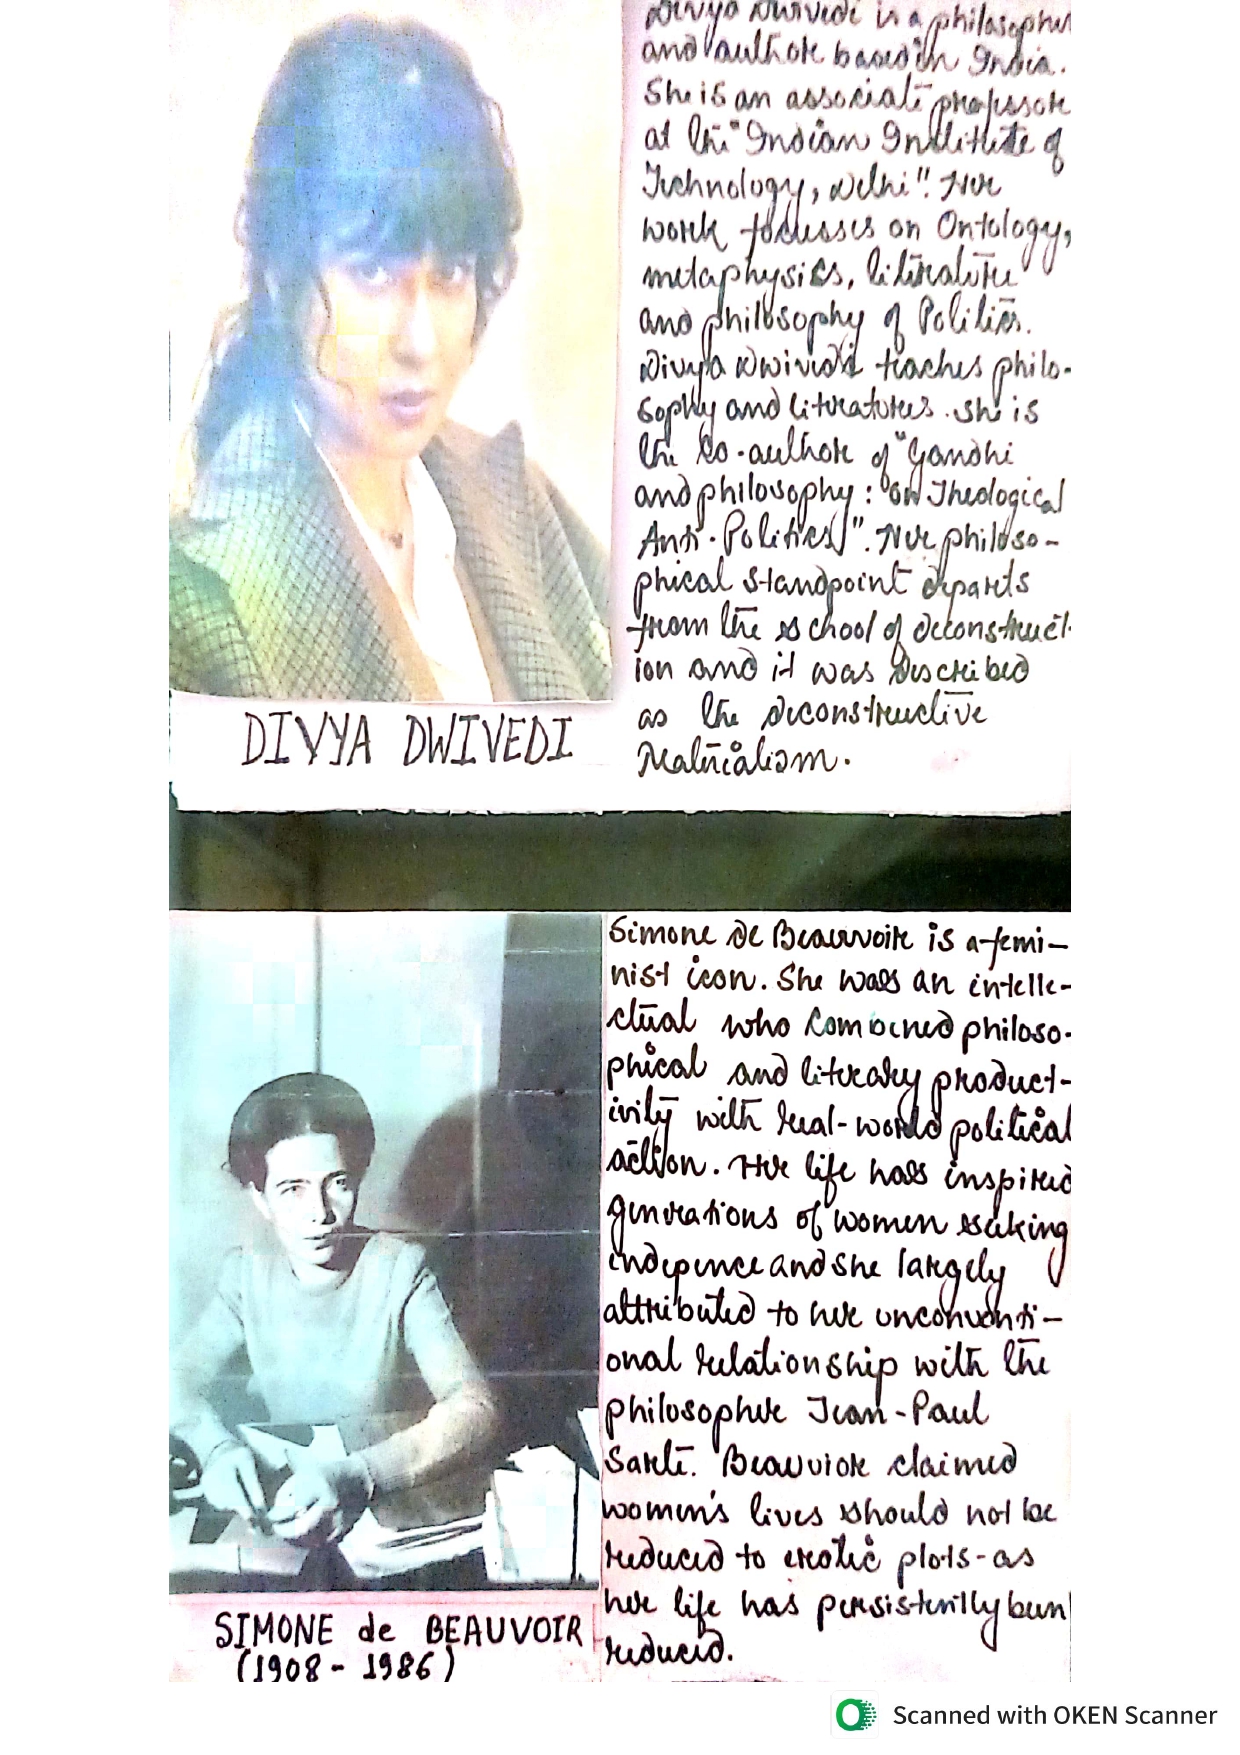 Divya Dwivedi is a philosopher
and author based in India.
She is an associate professor
at the "Indian Institute of
Technology, Delhi". Her
work focusses on Ontology,
metaphysics, literature
and philosophy of Politics.
Divya Dwivedi teaches philo-
sophy and literatures. She is
the Co-author of "Gandhi
and philosophy: "on Theological
Anti-Politics". Her philoso-
phical standpoint departs
from the school of deconstruct-
ion and it was described
as the deconstructive
Materialism.
DIVYA DWIVEDI
Simone de Beauvoir is a femi-
nist icon. She was an intelle-
ctual who combined philoso-
phical and literary product-
ivity with real-world political
action. Her life has inspired
generations of women seeking
indepence and she largely
attributed to her unconventi-
onal relationship with the
philosopher Jean-Paul
Sarte. Beauvior claimed
women's lives should not be
reduced to erotic plots-as
her life has persistently been
reduced.
SIMONE de BEAUVOIR
(1908 - 1986)
Scanned with OKEN Scanner